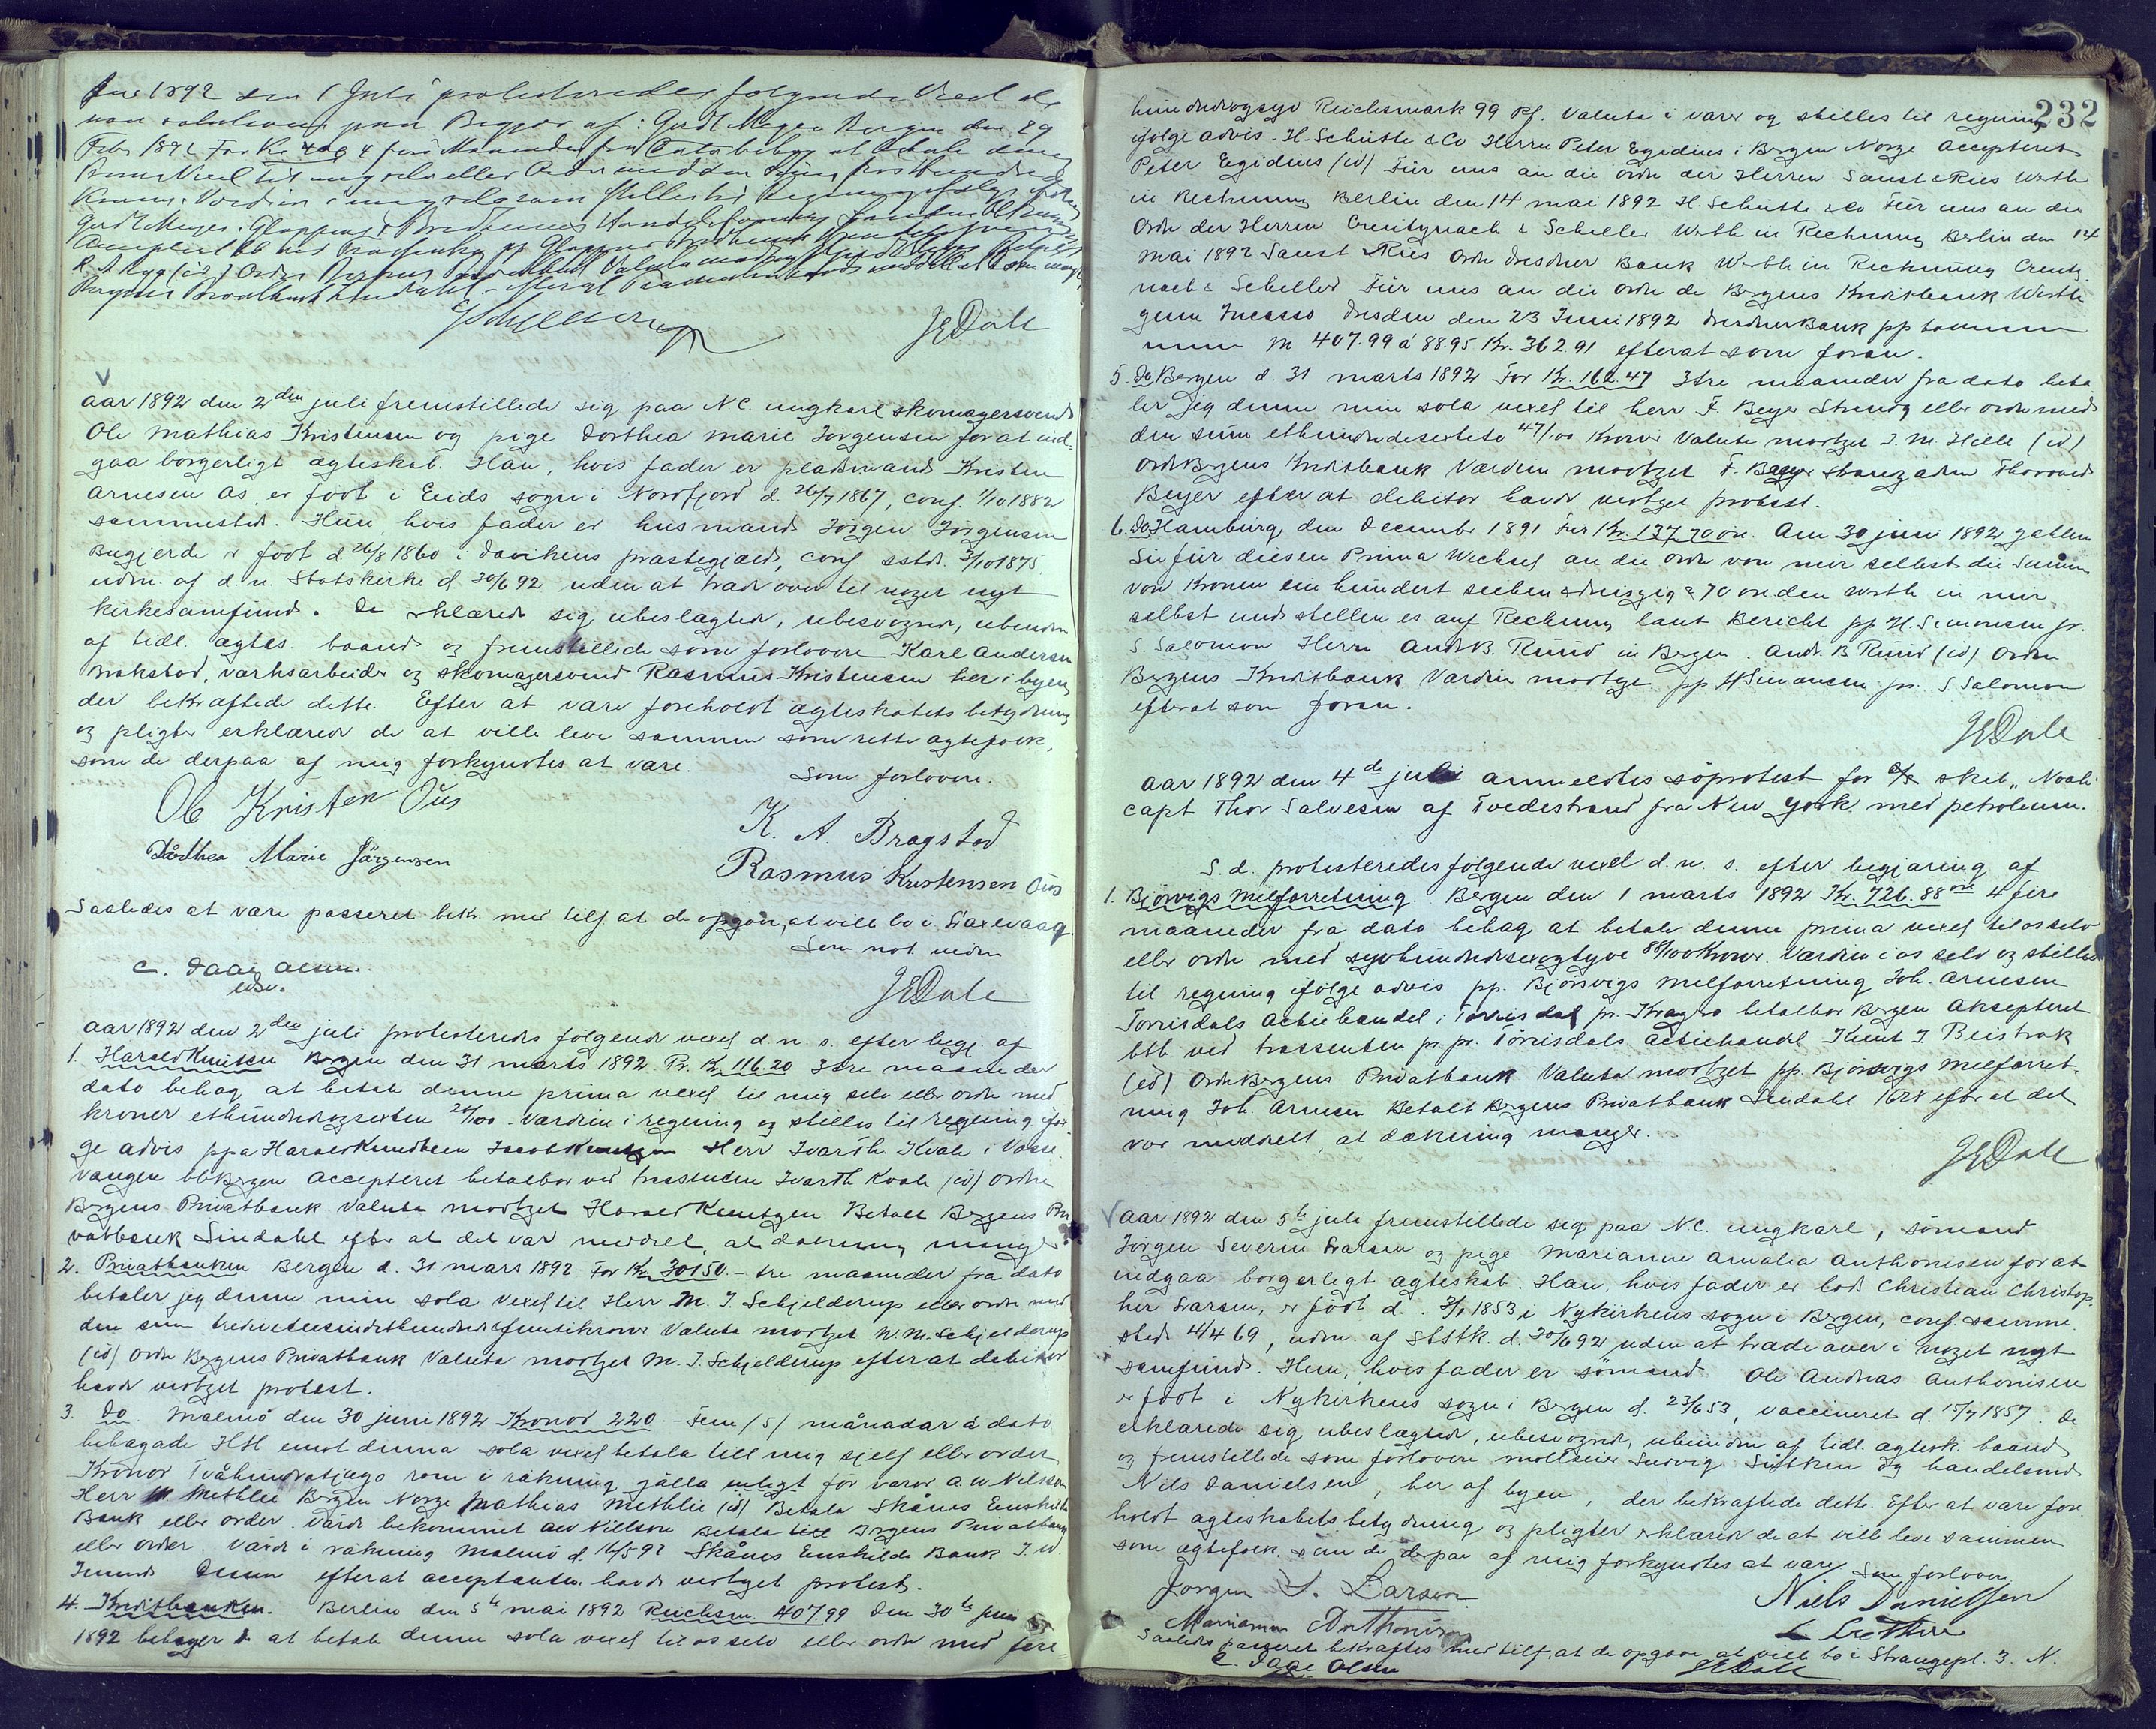 Aar 1892 den 1 Juli protesteredes følgende Vexel
paa Begjær af: Gerdt Meyer Bergen den 29
Febr 1892 For Kr. 400 4 fire Maaneder fra Dato behag at betale denne
Prima Vexel til mig selv eller Ordre med den Sum firehundrede
Kroner. Værdien i mig selv som stilles til Regning ifølge
Gerdt Meyer.
J E Dale
V
Aar 1892 den 2den juli fremstillede sig paa N.C. ungkarl skomagersvend
Ole Mathias Kristensen og pige Dorthea Marie Jørgensen for at ind-
gaa borgerligt ægteskab. Han, hvis fader er pladsmand Kristen
Arnesen Ås, er födt i Eids sogn i Nordfjord d. 26/7 1867, conf. 1/10 1882
sammesteds. Hun hvis fader er husmand Jørgen Jørgensen
er födt d. 26/8 1860 i Davikens præstegjæld, conf. sstd. 3/10 1875
udm. af d. n. Statskirke d. 30/6 92 uden at træde over til noget nyt
kirkesamfund. De erklærede sig ubeslægtede, ubesvogrede, ubundne
af tidl. ægtes. baand og fremstillede som forlovere Karl Andersen
Brakstad, værksarbeider og skomagersvend Rasmus Kristensen her i byen,
der bekræftede dette. Efter at være foreholdt ægteskabets betydning
og pligter erklærede de at ville leve sammen som rette ægtefolk,
som de derpaa af mig forkyndtes at være.
Som forlovere.
Ole Kristen Øus
K. A. Bragstad
Dårthea Marie Jørgensen
Rasmus Kristensen Øus
Saaledes at være passeret bekr. med tilf. at de opgav, at ville bo i Saxevaag
Som not. vidne
C. Daae Olsen
J E Dale
Aar 1892 den 2den juli protesteredes følgende vexel d. n. s. efter begj. af
1. Harald Knutzen Bergen den 31 marts 1892. Pr. Kr. 116.20 3 tre maaneder
dato behag at betale denne prima vexel til mig selv eller ordre med
kroner ethundredeogsexten 20/100. Værdien i regning og stilles til regning iføl-
ge advis ppa Harald Knudtzen Jacob Knutzen Herr Ivar Th. Kvale i Vosse
vangen Bergen Accepteret betalbar ved trassenten Ivar Th Kvale (id) ordre
Bergens Privatbank Valuta modtaget Harald Knutzen Betalt Bergens Pri
vatbank Lindahl efter at det var meddelt, at dækning mangler
2. Privatbanken Bergen d. 31 mars 1892 For Kr. 30150.- tre maaneder fra dato
betaler jeg denne min sola vexel til Herr M. J. Schjelderup eller ordre med
den sum tredivetusindethundredefemtikroner Valuta modtaget W. M. Schjelderup
(id) ordre Bergens Privatbank Valuta modtaget M. J. Schjelderup efter at debitor
havde vedtaget protest.
3. Do. Malmö den 30 juni 1892 Kronor 220.- Fem (5) månadar à dato
behagade HH emot denna sola vexel betala till mig sjelf eller order
Kronor Tvåhundratjugo som i räkning gälla enligt för varor A. W Nilsson
Herr M Methlie Bergen Norge Mathias Methlie (id) Betala Skånes Enskilda
Bank eller order. Värde bekommet AW Nilsson Betala till Bergens Privatbank
eller order. Värde i räkning Malmö d. 16/5 92 Skånes Enskilda Bank J. W.
efterat acceptanten havde vedtaget protest.
4. Kreditbanken. Berlin den 5te mai 1892 Reichsm. 407.99 Den 30te juni
1892 behager De at betale denne sola vexel til os selv eller ordre med fire
232
hundredeogsyv Reichsmark 99 Pf. Valuta i varer og stilles til regning
ifølge advis. H. Schütte & Co Herrn Peter Egidius i Bergen Norge Accepteret
Peter Egidius (id) Für uns an die ordre der Herren Sanst & Ries Werth
in Rechnung Berlin den 14 mai 1892 H. Schütte & Co Für uns an die
Ordre der Herren Creutznach & Scheller Werth in Rechnung Berlin den 14
mai 1892 Sanst & Ries Ordre Dresdner Bank Werth in Rechnung Creutz-
nach & Scheller Für uns an die ordre de Bergens Kreditbank Werth
zum Incasso Dresden den 23 Juni 1892 Dresdner Bank pp
M 407.99 á 88.95 Kr. 362.91 efterat som foran.
5. Do Bergen d. 31 marts 1892 For Kr. 162.47 3 tre maaneder fra dato beta
ler jeg denne min sola vexel til herr F. Beyer Strandg eller ordre med
den sum ethundredesextito 47/100 Kroner Valuta modtaget J. M. Hille (id)
Ordre Bergens Kreditbank Værdien modtaget F. Beyer Strangaden Thorvald
Beyer efter at debitor havde vedtaget protest.
6. Do Hamburg den December 1891 Für Kr. 137.70 öre. Am 30 juni 1892 zahlen
Sie für diesen Prima Wechsel an die Ordre von mir selbst die Summe
von Kronen ein hundert sieben & dreiszig & 70 öre den Werth in mir
selbst und stellen es auf Rechnung laut Bericht pp H. Simonsen jr.
S. Salomon Herrn Andr B. Ruud in Bergen. Andr. B Ruud (id) Ordre
Bergens Kreditbank Værdien modtaget pp H Simonsen jr. S. Salomon
efterat som foran.
J E Dale
Aar 1892 den 4de juli anmeldtes söprotest for skib „Noah"
capt Thor Salvesen af Tvedestrand fra New York med petroleum.
S. d. protesteredes følgende vexel d. n. s. efter begjæring af
1. Bjørsvigs Melforretning. Bergen den 1 marts 1892 Kr. 726.88 øre 4 fire
maaneder fra dato behag at betale denne prima vexel til os selv
eller ordre med syvhundredesexogtyve 88/100 Kroner. Værdien i os selv og stilles
til regning ifølge advis pp. Bjørsvigs Melforretning Joh. Arnesen
Torrisdals Actiehandel i Torrisdal pr. Kragerø betalbar Bergen Aksepteret
btb ved trassenten pr. pr. Torrisdals Actiehandel Knut J Beistrak
(id) Ordre Bergens Privatbank Valuta modtaget pp. Bjørsvigs Melforret-
ning Joh. Arnesen Betalt Bergens Privatbank Lindahl efter at det
var meddelt, at dækning mangler.
J E Dale
V Aar 1892 den 5te juli fremstillede sig paa N.C. ungkarl, sømand
Jørgen Severin Larsen og pige Marianne Amalia Anthonisen for at
indgaa borgerligt ægteskab. Han, hvis fader er lods Christian Christop-
her Larsen, er födt d. 1853 i Nykirkens sogn i Bergen, conf. samme
steds 4/4 69, udm. af Ststk. d. 30/6 92 uden at træde over i noget nyt
samfund. Hun, hvis fader er sømand Ole Andreas Anthonisen
er födt i Nykirkens sogn i Bergen d. 23/6 53, vaccineret d. 15/7 1857. De
erklærede sig ubeslægtede, ubesvogrede, ubundne af tidl. ægtesk. baand
og fremstillede som forlovere Ludvig og handelsmd.
Nils Danielsen, her af byen, der bekræftede dette. Efter at være fore
holdt ægteskabets betydning og pligter erklærede de at ville leve sammen
som ægtefolk som de derpaa af mig forkyndtes at være
Som forlovere
Jørgen S. Larsen
Niels Danielsen
Marianne Anthonisen
Saaledes passeret bekræftes med tilf. at de opgav at ville bo i Strangepl. 3. N.
C. Daae Olsen
J E Dale